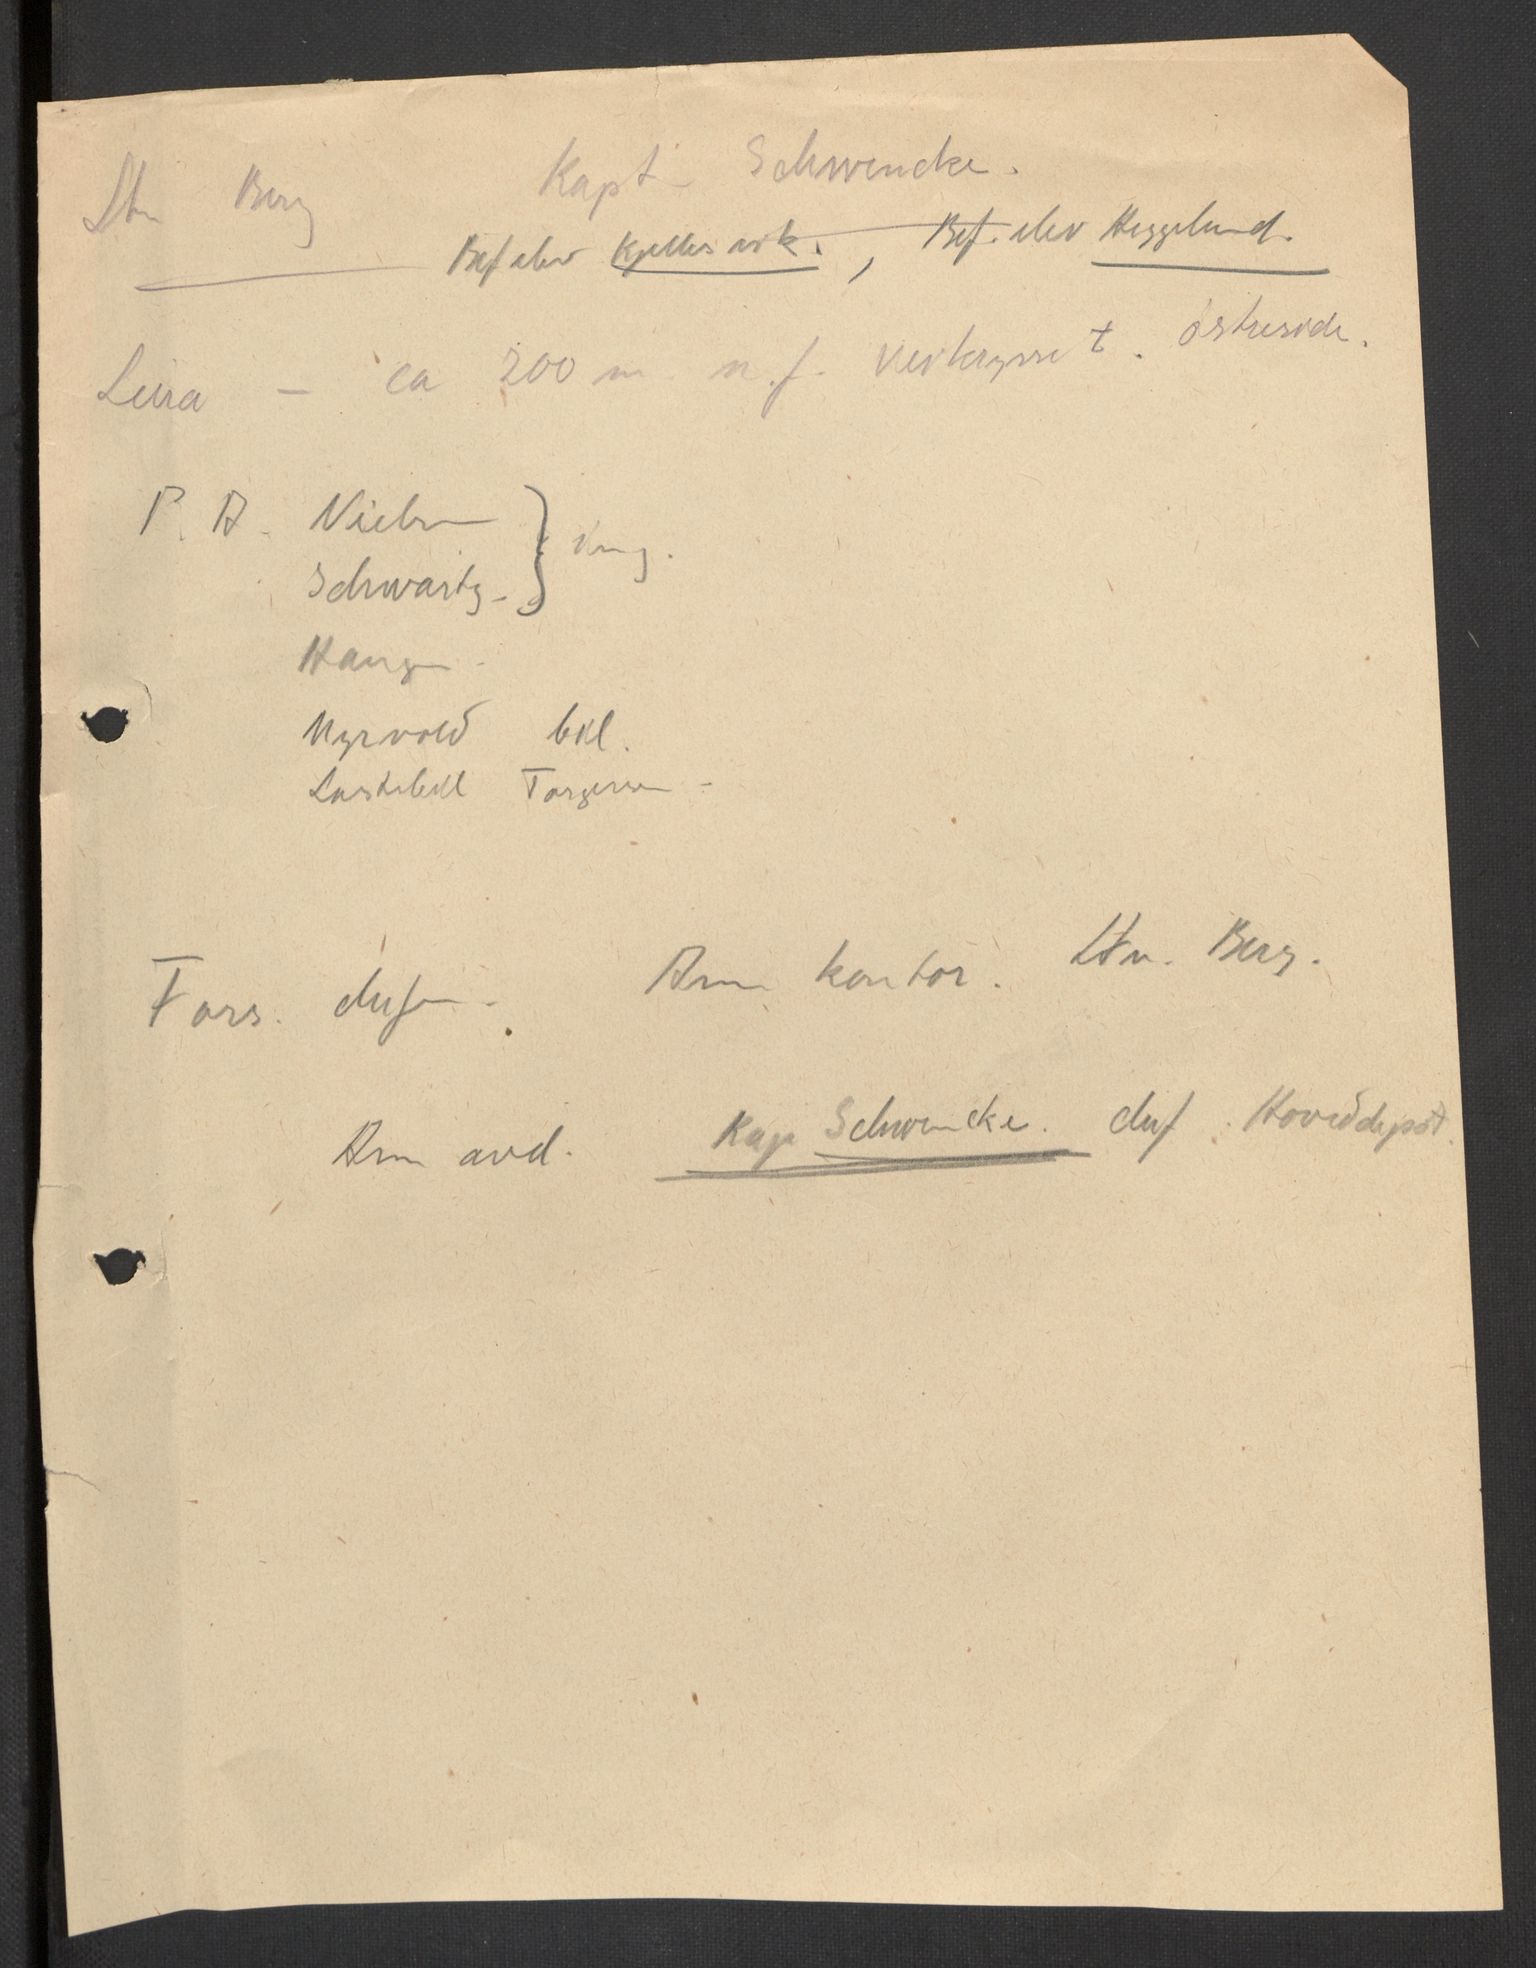 Ltn Berg Kapt. Schwencke.
Bef elev Kjellesvik., Bef. elev Heggelund.
Leira – ca 200 m n.f. veikrysset. østreside.
P. A. Nielsen } ing.
Schwartz.
Haugen.
Myrvold bkl.
Lastebkl Torgersen.
Fors. Ammkontor. Ltn. Berg.
Amm avd. Kap Schwencke. Hoveddepot.